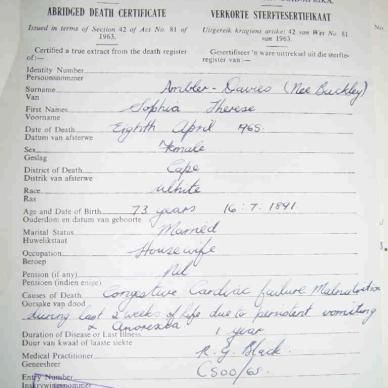 ABRIDGED DEATH CERTIFICATE VERKORTE STERFTESERTIFIKAAT
Issued in terms of Section 42 of Act No. 81 of 1963. Uitgereik kragtens artikel 42 van Wet No. 81 van 1963.
Certified a true extract from the death register of:— Gesertifiseer 'n ware uittreksel uit die sterfteregister van:—
Identity Number
Persoonsnommer
Surname Ambler-Davies (Nee Buckley)
Van
First Names Sophia Therese
Voorname
Date of Death Eighth April 1965.
Datum van afsterwe
Sex Female
Geslag
District of Death Cape
Distrik van afsterwe
Race White
Ras
Age and Date of Birth 73 years 16.7.1891
Ouderdom en datum van geboorte
Marital Status Married
Huwelikstaat
Occupation Housewife
Beroep
Pension (if any) Nil
Pensioen (indien enige)
Causes of Death Congestive Cardiac failure Malnutrition
Oorsake van dood
during last 2 weeks of life due to persistent vomiting
& Anorexia
Duration of Disease or Last Illness 1 year
Duur van kwaal of laaste siekte
Medical Practitioner R. G. Black.
Geneesheer
Entry Number C500/65.
Inskrywingsnommer
No.